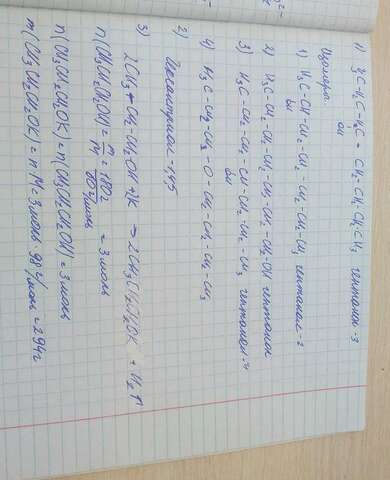 1) H₃C-H₂C-HC-CH₂CH₂CH₂CH₃ гептанол-3
OH
Изомеры:
1) H₃C-CH-CH₂-CH₂-CH₂-CH₂-CH₃ гептанол-2
OH
2) H₃C-CH₂-CH₂-CH₂-CH₂-CH₂-CH₂-OH гептанол
3) H₃C-CH₂-CH₂-CH-CH₂-CH₂-CH₃ гептанол-4
OH
4) H₃C-CH₂-CH₂-O-CH₂-CH₂-CH₂-CH₃
2)
3) 2CH₃-CH₂-CH₂OH+2K → 2CH₃CH₂CH₂OK + H₂↑
n(CH₃CH₂CH₂OH) = m/M = 180г/60г/моль = 3 моль
n(CH₃CH₂CH₂OK) = n(CH₃CH₂CH₂OH) = 3 моль
m(CH₃CH₂CH₂OK) = n·M = 3 моль·98г/моль = 294г